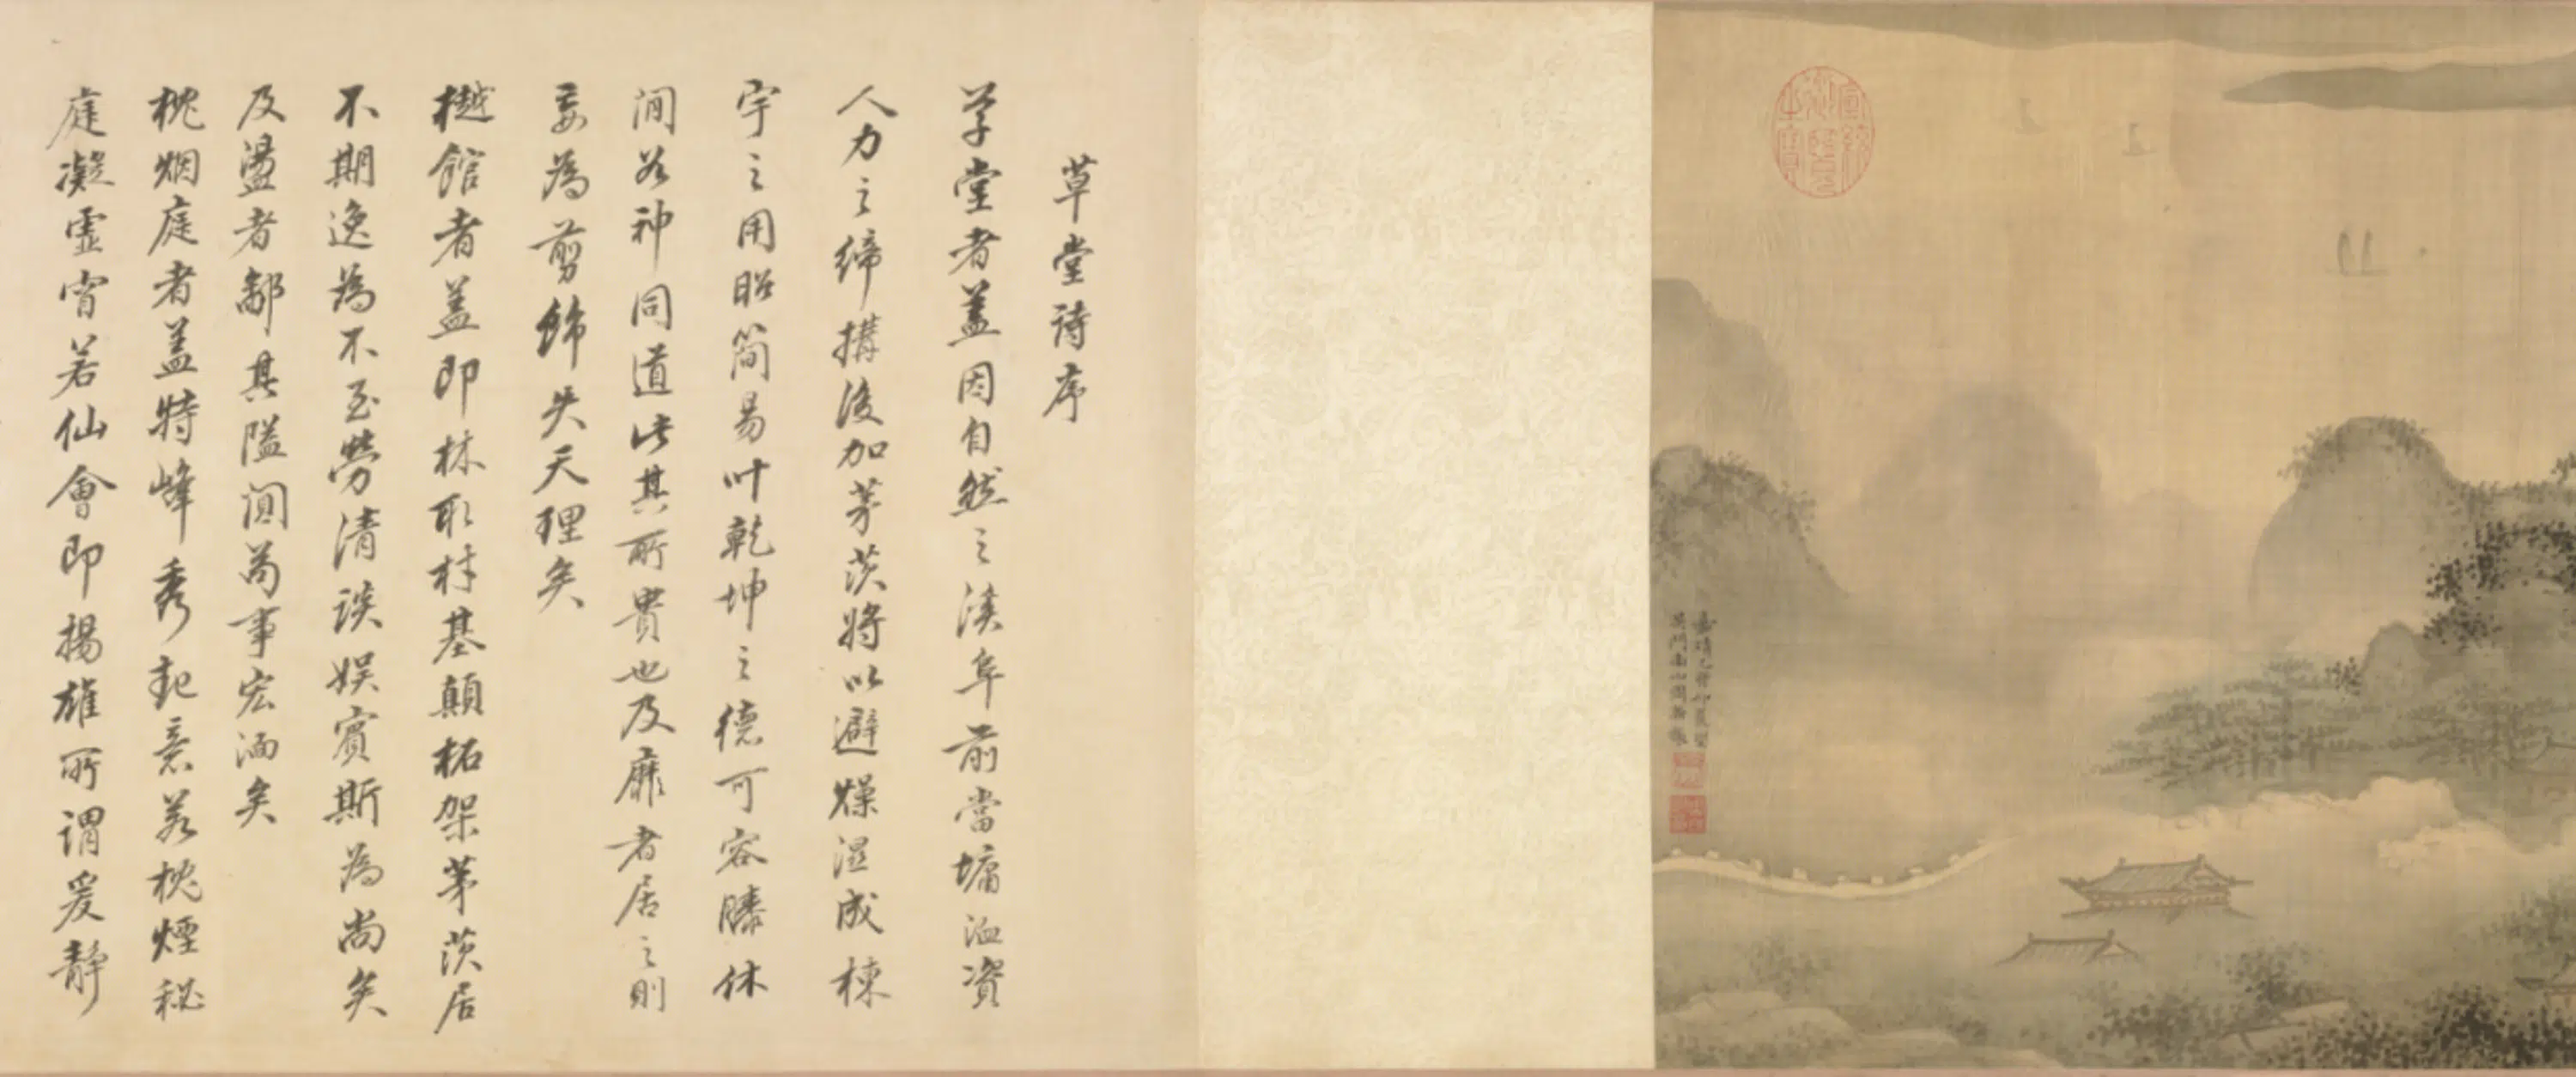 宣統御覽之寶
草堂诗序
草堂者盖因自然之溪阜前當墉洫資
人力之締搆後加茅茨將以避燥湿成棟
宇之用昭簡易叶乾坤之德可容膝休
閒谷神同道此其所貴也及靡者居之則
妄為剪飾失天理矣
樾館者盖即林取材基顛柘架茅茨居
不期逸為不至勞清談娱賓斯為尚矣
及盪者鄙其隘闃苟事宏湎矣
枕烟庭者盖特峰秀起意若枕煙秘
庭凝虛窅若仙會即揚雄所謂爰靜